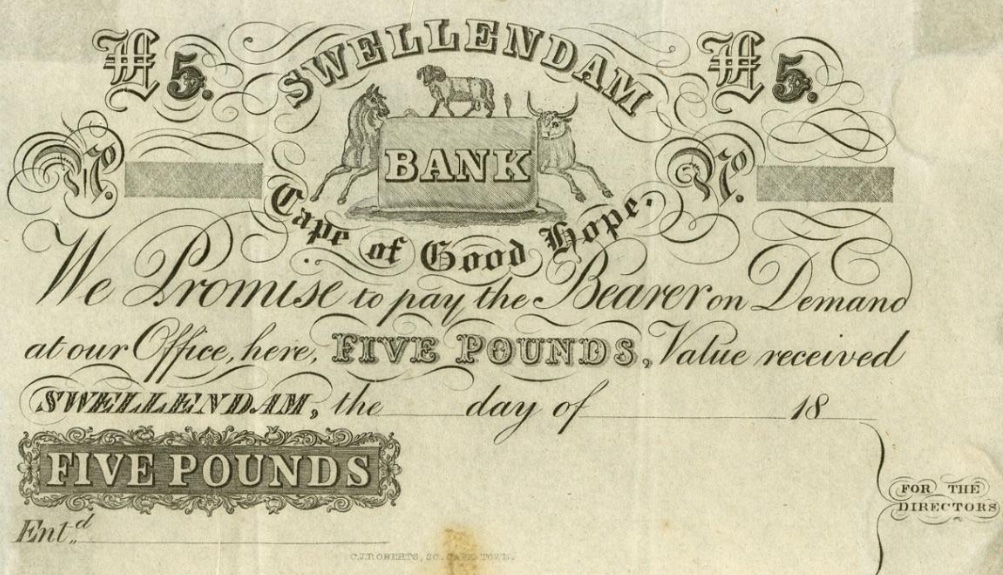 £5. £5.
SWELLENDAM
BANK
No. No.
Cape of Good Hope.
We Promise to pay the Bearer on Demand
at our Office, here, FIVE POUNDS, Value received
SWELLENDAM, the day of 18
FIVE POUNDS
FOR THE
DIRECTORS
Entd.
C.J. ROBERTS, SC. CAPE TOWN.